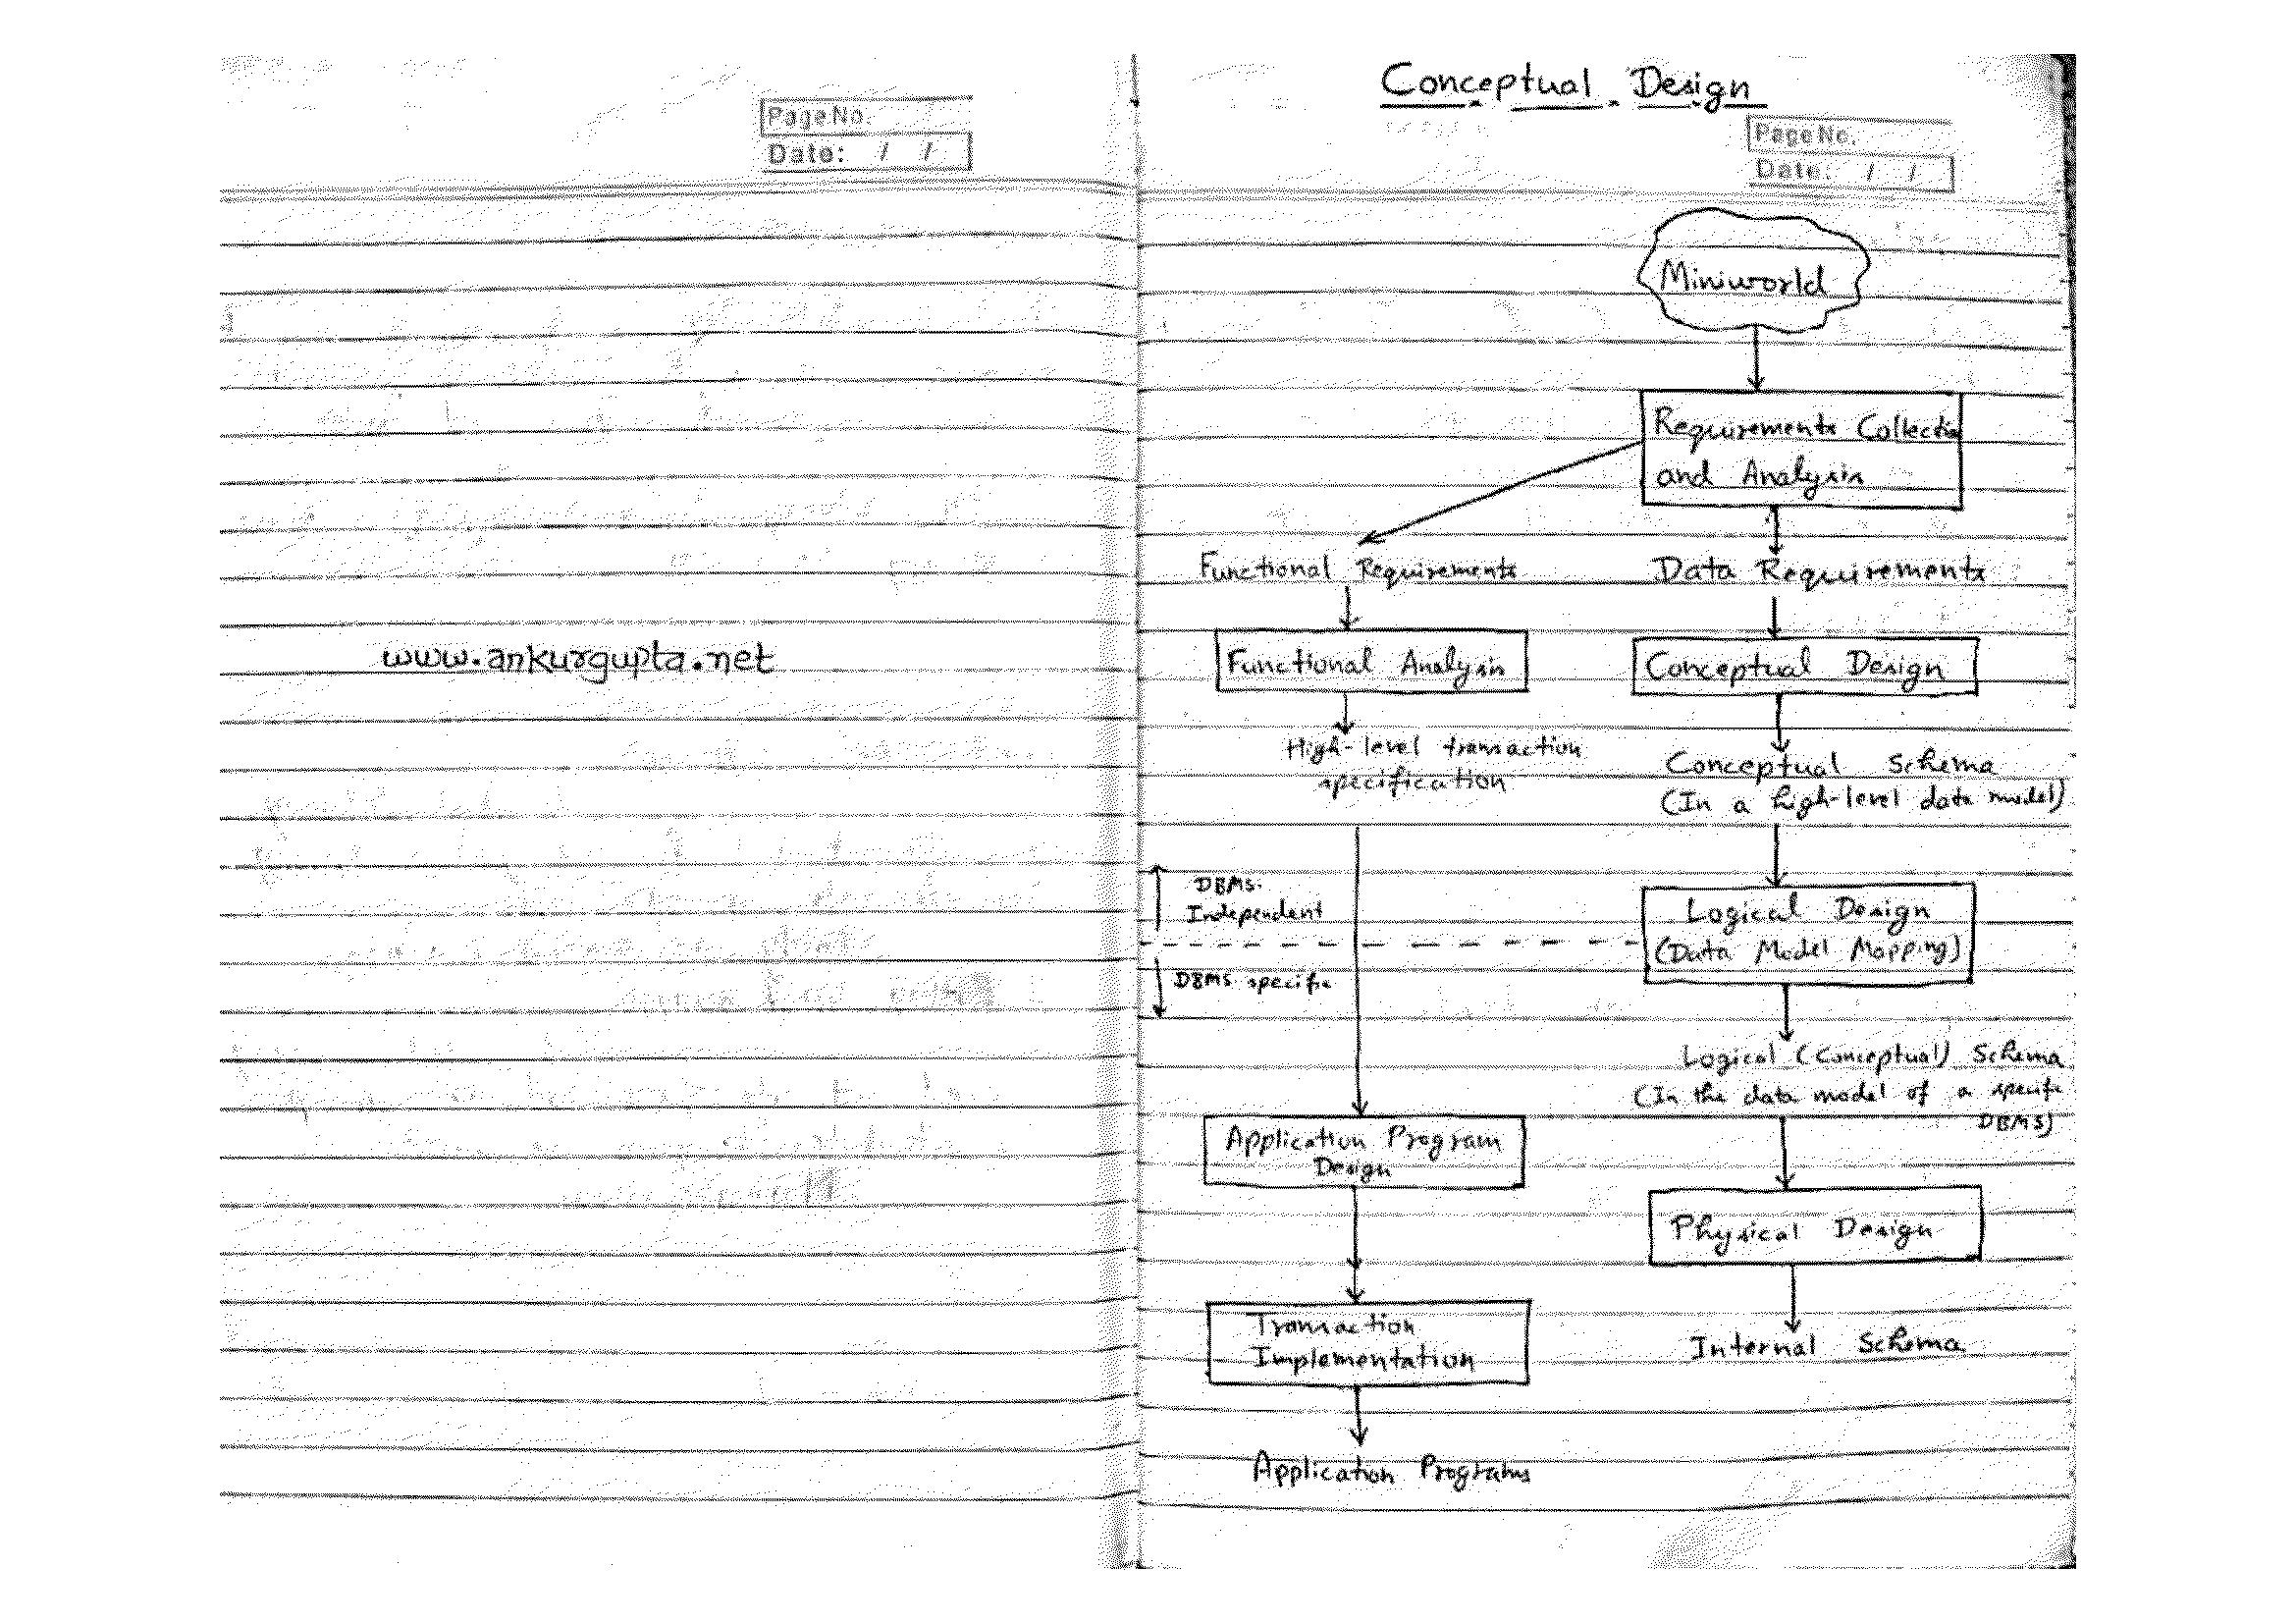 Page No.
Date: / /
www.ankurgupta.net
Conceptual Design
Page No.
Date: / /
Miniworld
Requirements Collection
and Analysis
Functional Requirements
Data Requirements
Functional Analysis
Conceptual Design
High-level transaction
specification
Conceptual Schema
(In a high-level data model)
DBMS.
Independent
Logical Design
(Data Model Mapping)
DBMS specific
Logical (Conceptual) Schema
(In the data model of a specific
DBMS)
Application Program
Design
Physical Design
Transaction
Implementation
Internal Schema
Application Programs